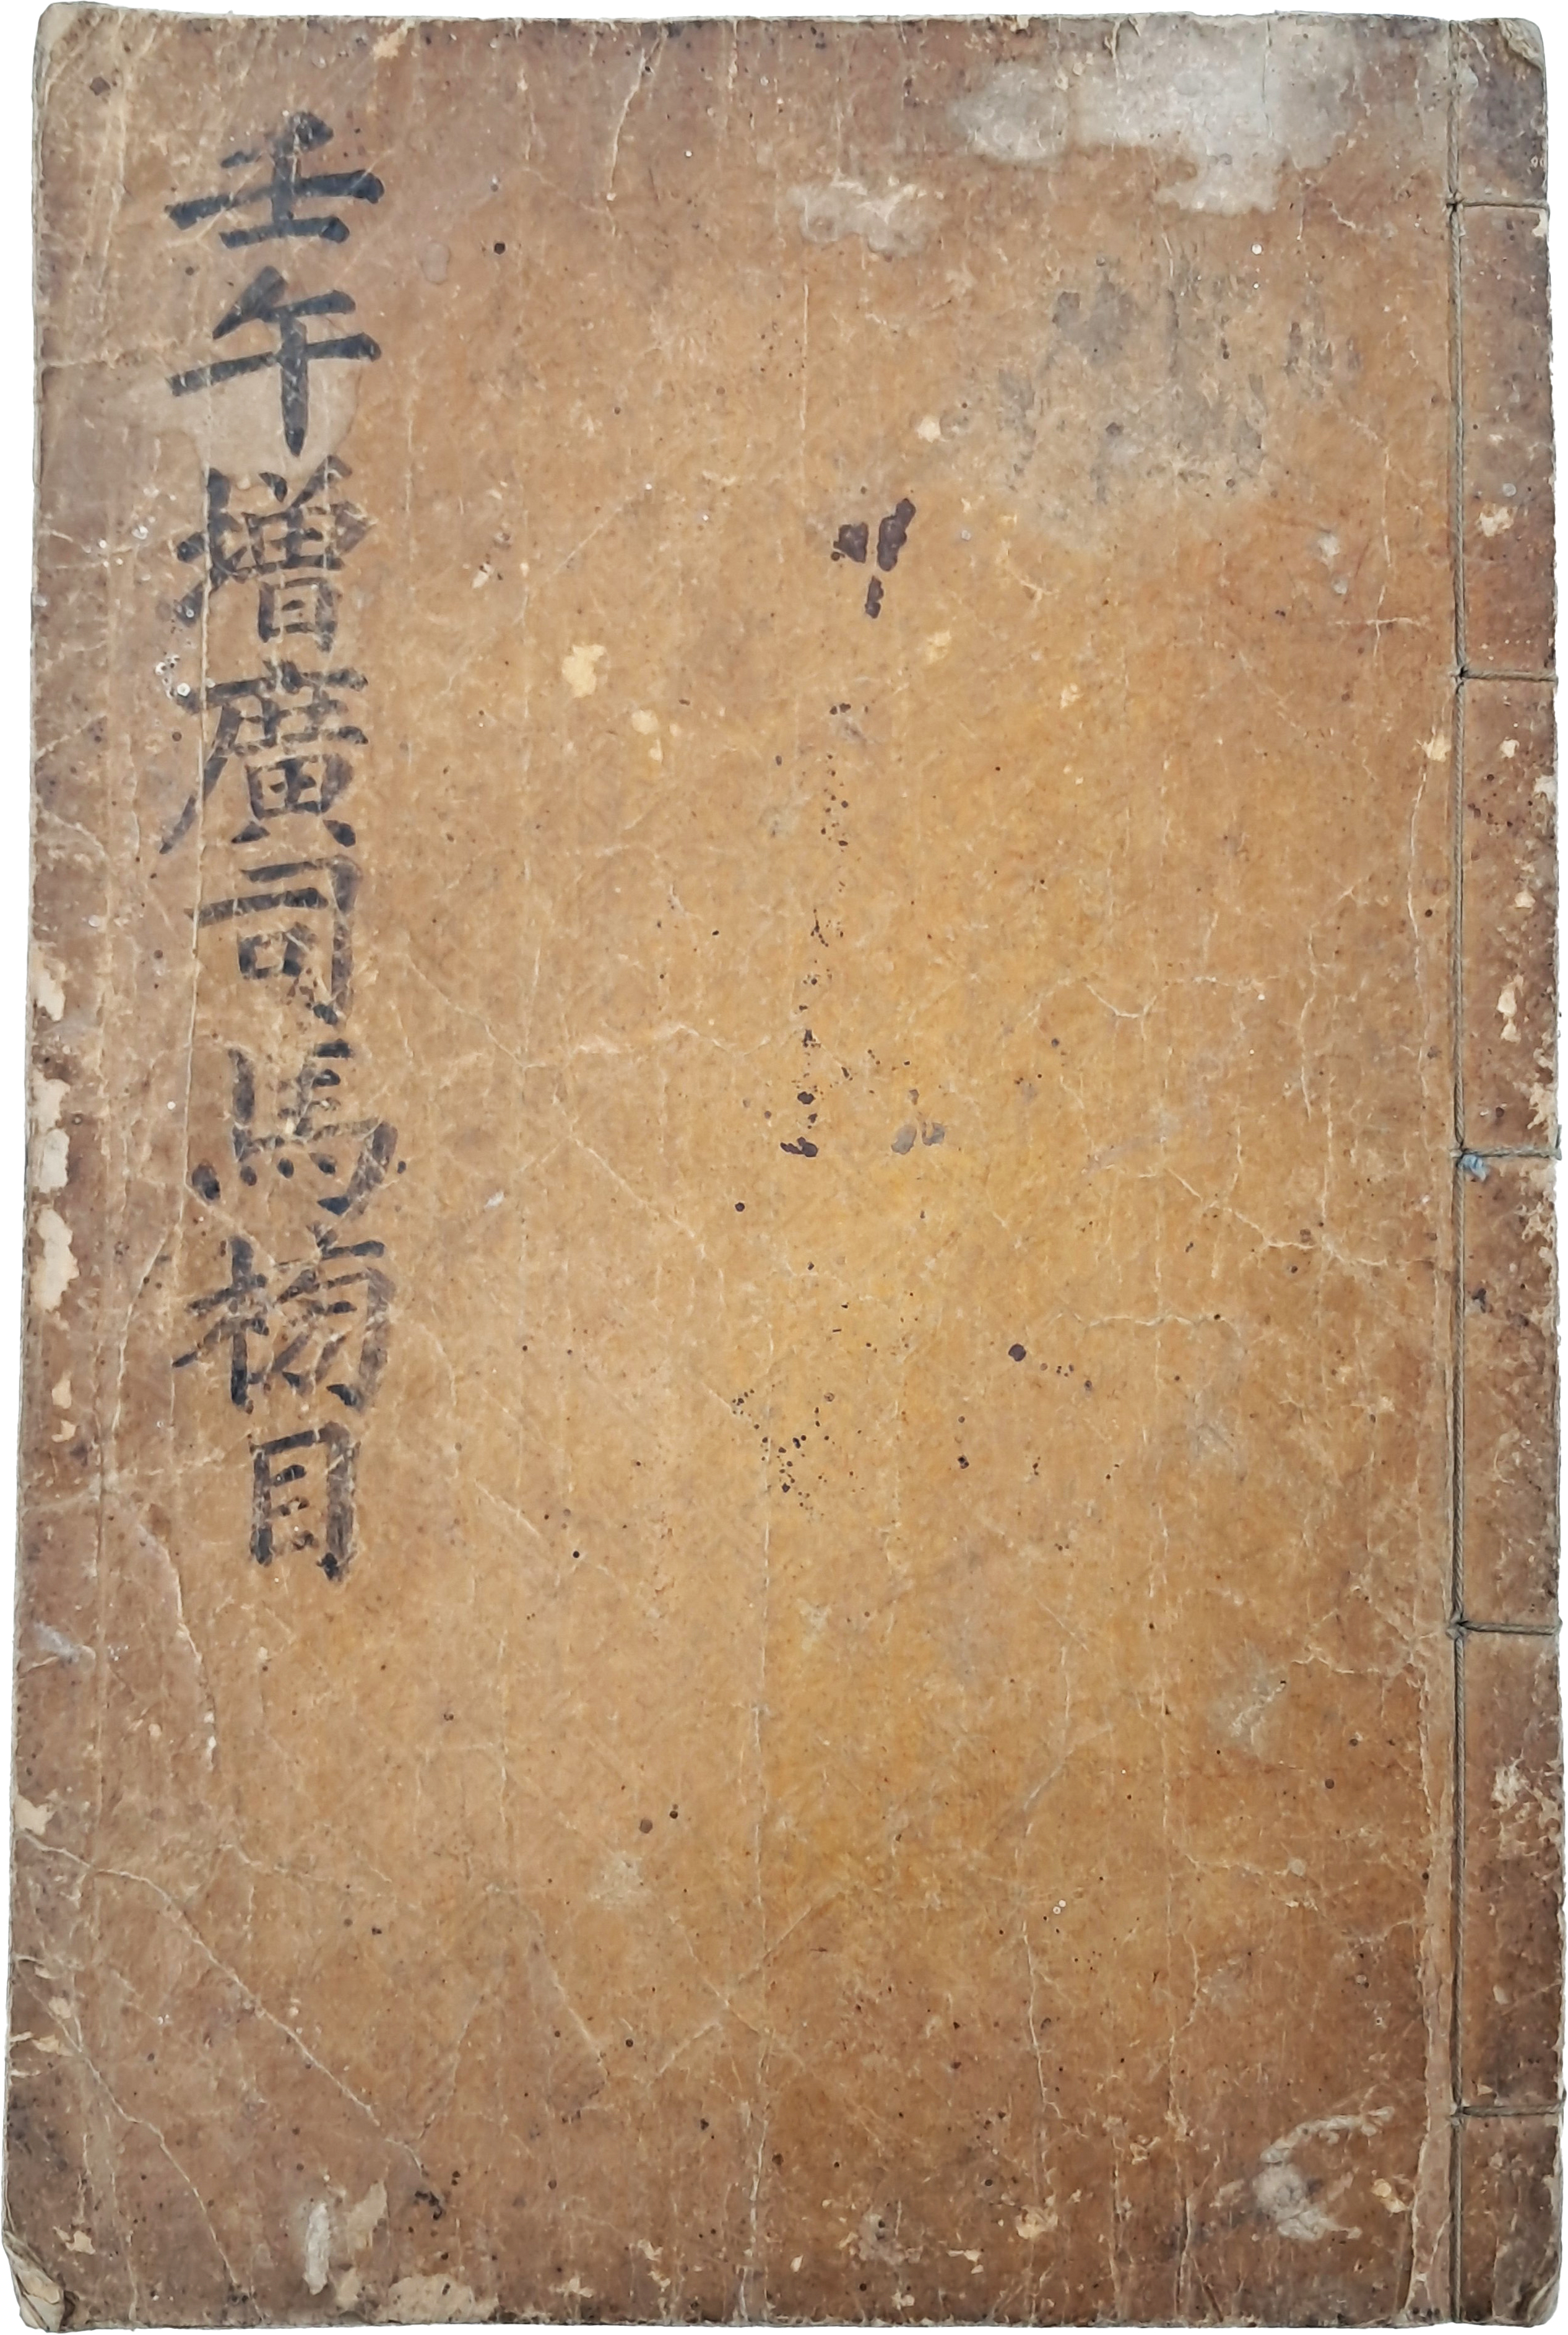 壬午增廣司馬榜目